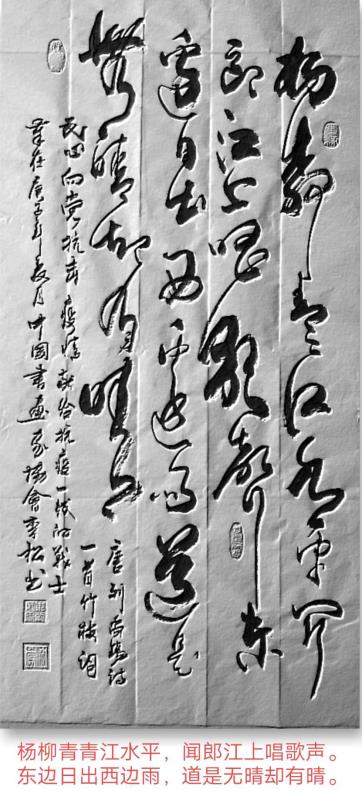 杨柳青青江水平闻
郎江上唱歌聲东
邊日出西边雨道是
無晴却有晴
唐刘禹锡诗
一首竹枝词
民心向党抗击疫情献给抗疫一线的战士
庚子年夏月中國書画家協會李松书
杨柳青青江水平，闻郎江上唱歌声。
东边日出西边雨，道是无晴却有晴。